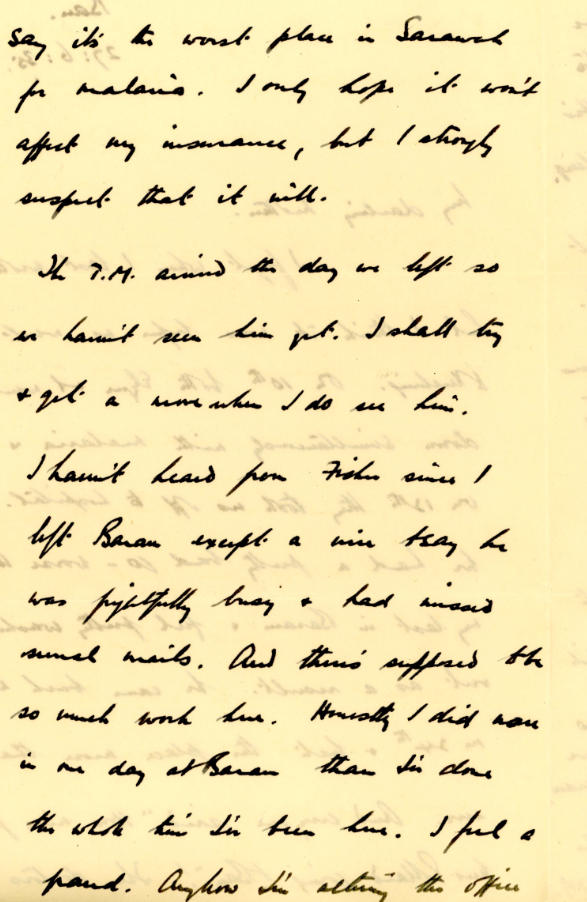 say it's the worst place in Sarawak
for malaria. I only hope it won't
affect my insurance, but I strongly
suspect that it will.
The T.M. arrived the day we left so
we haven't seen him yet. I shall try
& get a move when I do see him.
I haven't heard from Fisher since I
left Baram except a wire to say he
was frightfully busy & had missed
several mails. And there's supposed to be
so much work here. Honestly I did more
in one day at Baram than I've done
the whole time I've been here. I feel a
fraud. Anyhow I'm altering the office